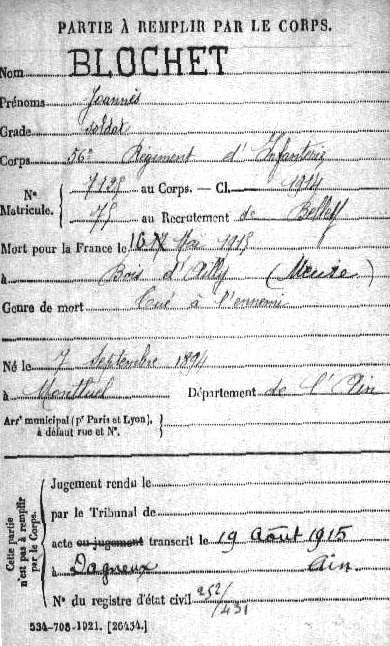 PARTIE À REMPLIR PAR LE CORPS.
Nom BLOCHET
Prénoms Joannis
Grade soldat
Corps 56e Régiment d'Infanterie
N° Matricule. { 7135 au Corps. — Cl. 1914
75 au Recrutement de Belley
Mort pour la France le 16 Mai 1915
à Bois d'Ailly (Meuse)
Genre de mort Tué à l'ennemi
Né le 7 Septembre 1894
à Montluel Département de l'Ain
Arrt municipal (pr Paris et Lyon), à défaut rue et N°. }
Cette partie n'est pas à remplir par le Corps. {
Jugement rendu le
par le Tribunal de
acte ou jugement transcrit le 19 Août 1915
à Dagneux Ain.
N° du registre d'état civil 252/431
534-708-1921. [26434.]